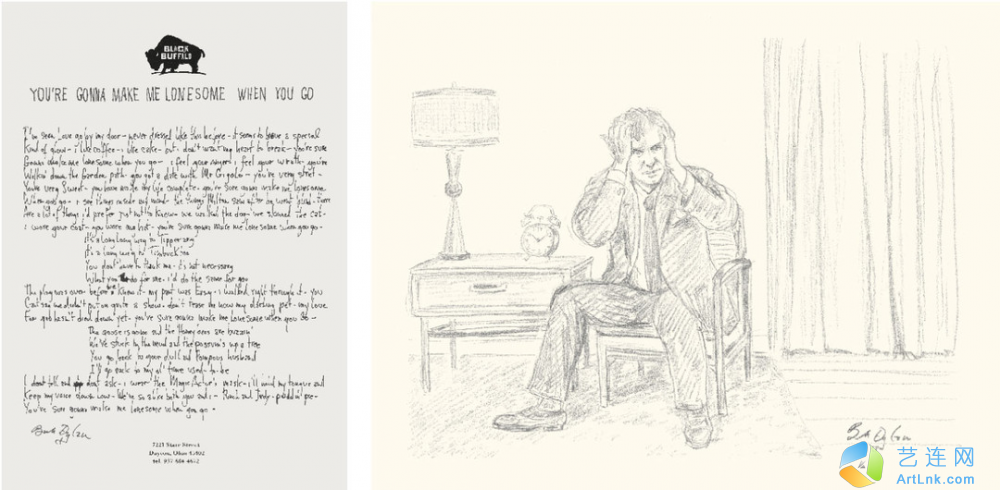 BLACK
BUFFALO
YOU'RE GONNA MAKE ME LONESOME WHEN YOU GO
I've seen love go by my door - never dressed like this before - it seems to leave a special
Kind of glow - i like coffee - i like cake - but - don't want my heart to break - you're sure
Gonna make me lonesome when you go - i feel your anger i feel your wrath - you're
Walkin' down the garden path - you got a date with Mr Gigolo - you're very
You're very sweet - you have made my life complete - you're sure gonna make me lonesome
When you go - i say things inside my mind - the things Milton saw after he went blind - there
Are a lot of things i'd prefer not to know - we walked the dog - we the cat -
i wore your coat - you wore my hat - you're sure gonna make me lonesome when you go -
It's a long long way to Tipperary
It's a long way to Timbuktoo
You don't have to thank me - it's not necessary
What you do for me - i'd do the same for you
The play was over before i knew it - my part was easy - i walked right through it - you
Can't say we didn't put on quite a show - don't tease me now my darling pet - my love
For you hasn't died down yet - you're sure gonna make me lonesome when you go -
The goose is and the honey bees are buzzin'
We're stuck in the mud and the possum's up a tree
You go back to your dull and pompous husband
I'll go back to my ol' used-to-be
I don't tell and don't ask - i wore the Magic mask - i'll hold my tongue and
Keep my voice down low - We're so alive both you and i - Punch and Judy - puddin' pie -
You're sure gonna make me lonesome when you go -
Bob Dylan
7221 State Street
Dayton, Ohio
tel.
Bob Dylan
艺连网
ArtLnk.com